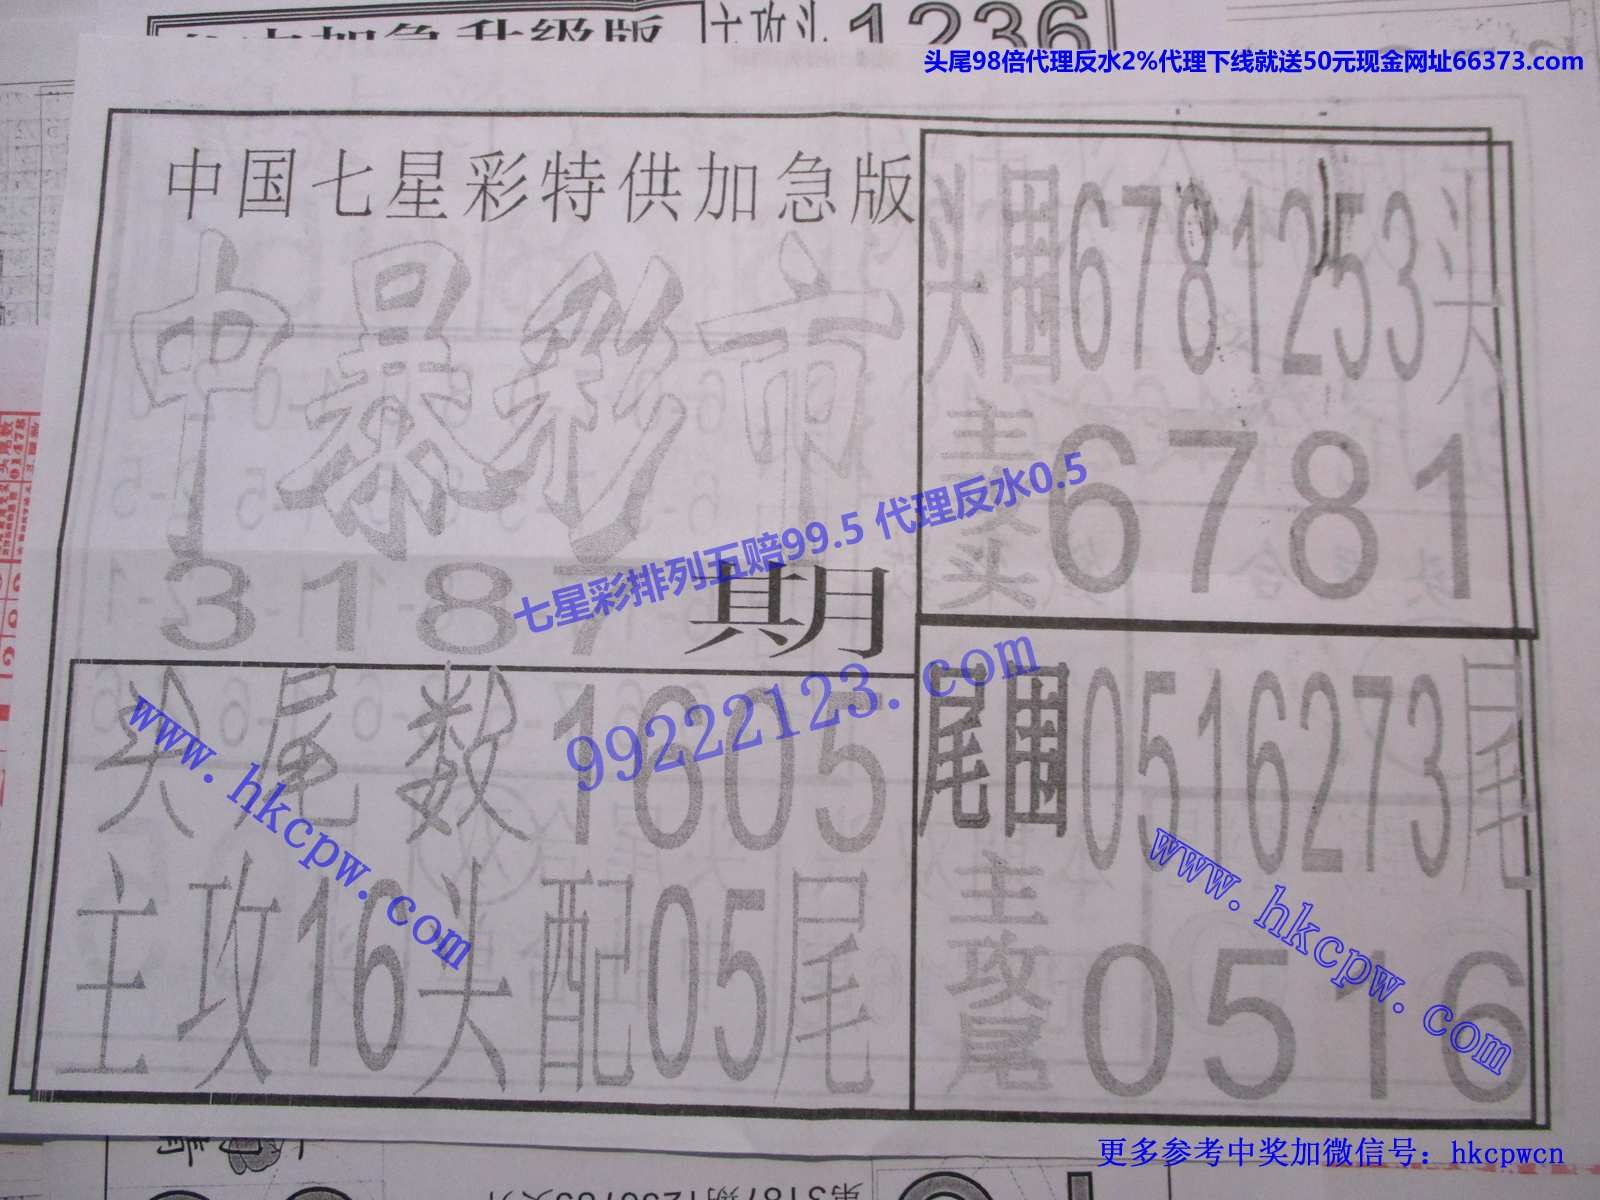 主攻头1236
头尾98倍代理反水2%代理下线就送50元现金网址66373.com
中国七星彩特供加急版
中暴彩市
3187期
头围6781253头
主买6781
七星彩排列五赔99.5 代理反水0.5
99222123.com
头尾数1605
主攻16头配05尾
www.hkcpw.com
尾围0516273尾
主攻尾0516
www.hkcpw.com
更多参考中奖加微信号：hkcpwcn